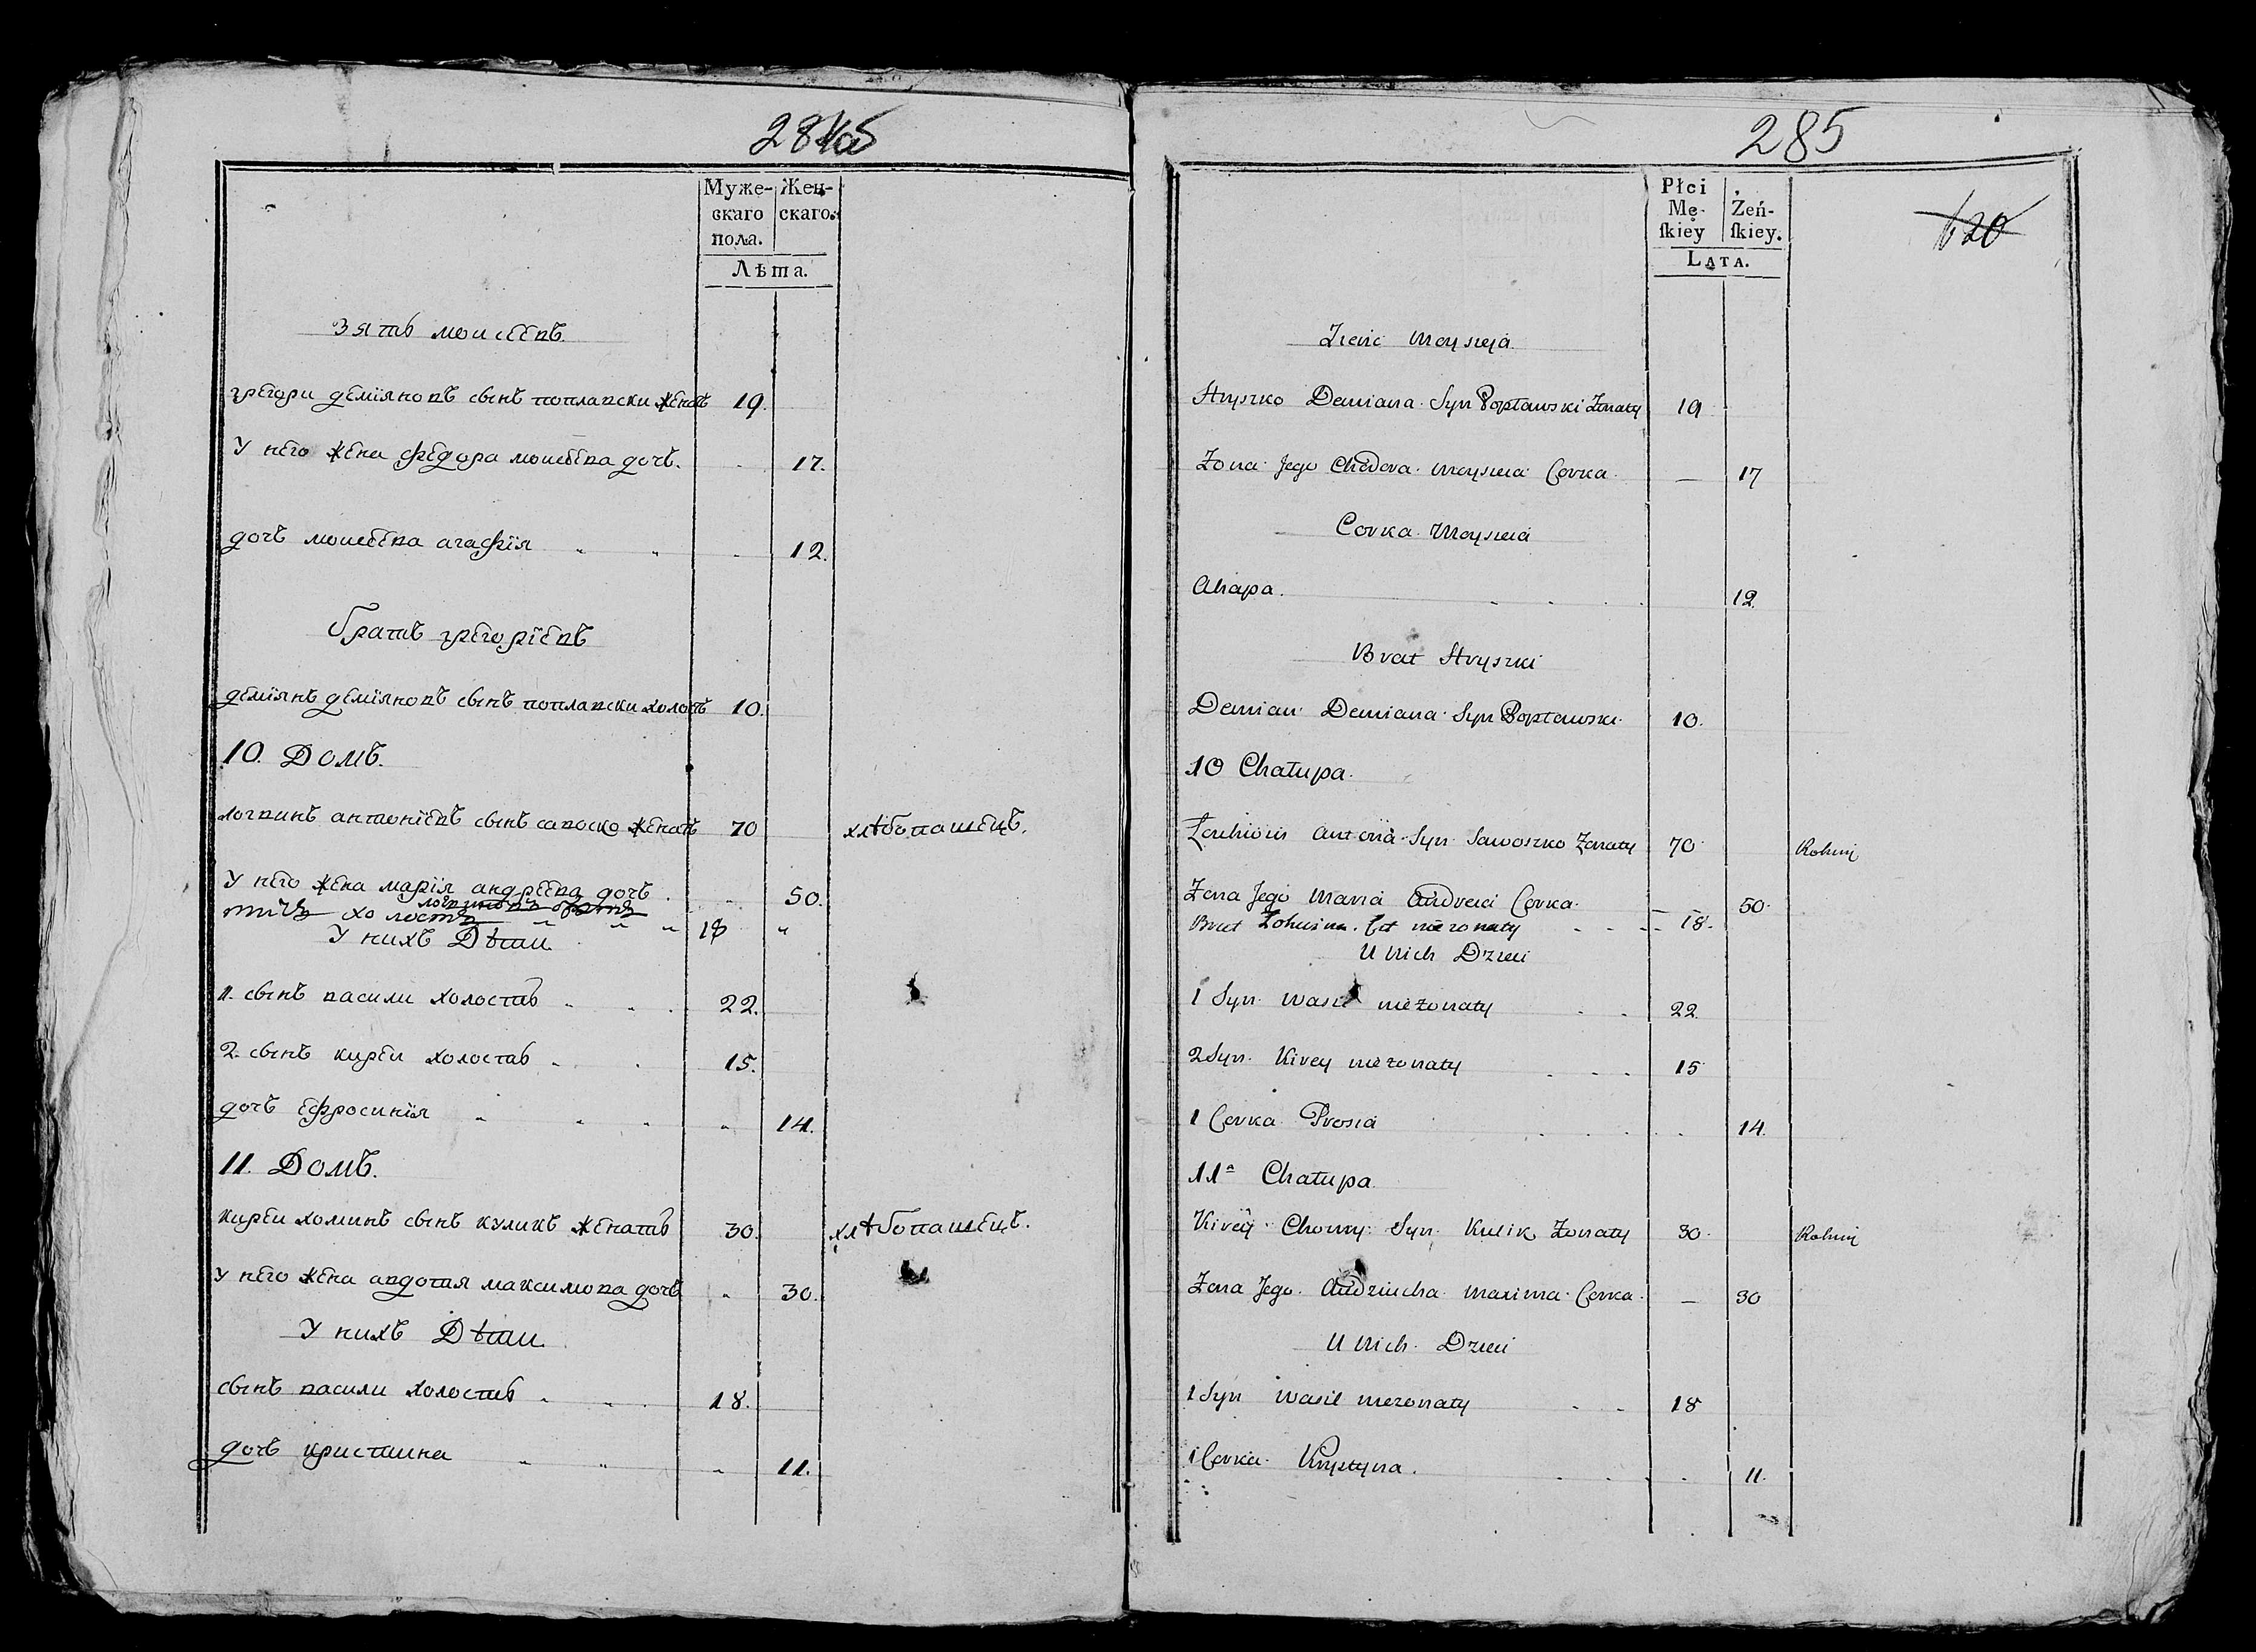 284об
Муже- Жен-
скаго скаго.
пола.
Лѣта.
Зять моисеевъ
григори деміяновъ сынъ поплавски женатъ 19.
У него жена федора моисеева дочь. 17.
дочь моисеева агафія 12.
братъ григоріевъ
деміянъ деміяновъ сынъ поплавски холостъ 10.
10. Домъ.
логвинъ антоніевъ сынъ савоско женатъ 70 хлѣбопашецъ.
У него жена марія андреева дочь 50.
логвиновъ братъ
холостъ 18 "
У нихъ Дѣти
1. сынъ васили холостъ 22.
2. сынъ кирей холостъ 15.
дочь ефросинія 14.
11. Домъ.
кирей хоминъ сынъ куликъ женатъ 30. хлѣбопашецъ.
У него жена авдотия максимова дочь 30.
У нихъ Дѣти
сынъ васили холостъ 18.
дочь кристина 11.
285
120
Płci
Mę- Żeń-
ſkiey ſkiey.
LATA.
Zienc Moysieja
Hryszko Demiana Syn Popławski Żonaty 19
Żona Jego Chedora Moysieia Corka 17
Corka Moysieia
Ahapa. 12.
Brat Hryszki
Demian Demiana Syn Popławski 10.
10 Chałupa.
Antona Syn Sawoszko Żonaty 70 Rolniy
Żona Jego Maria Andreia Corka 50.
Brat nieżonaty 18.
U Nich Dzieci
1 Syn Wasil nieżonaty 22
2 Syn. Kirey nieżonaty 15
1 Corka Prosia 14.
11ª Chałupa
Kirey Chomy Syn Kulik Żonaty 30 Rolniy
Żona Jego Audziucha Maxima Corka 30
U Nich Dzieci
1 Syn Wasil nieżonaty 18
1 Corka Krystyna. 11.